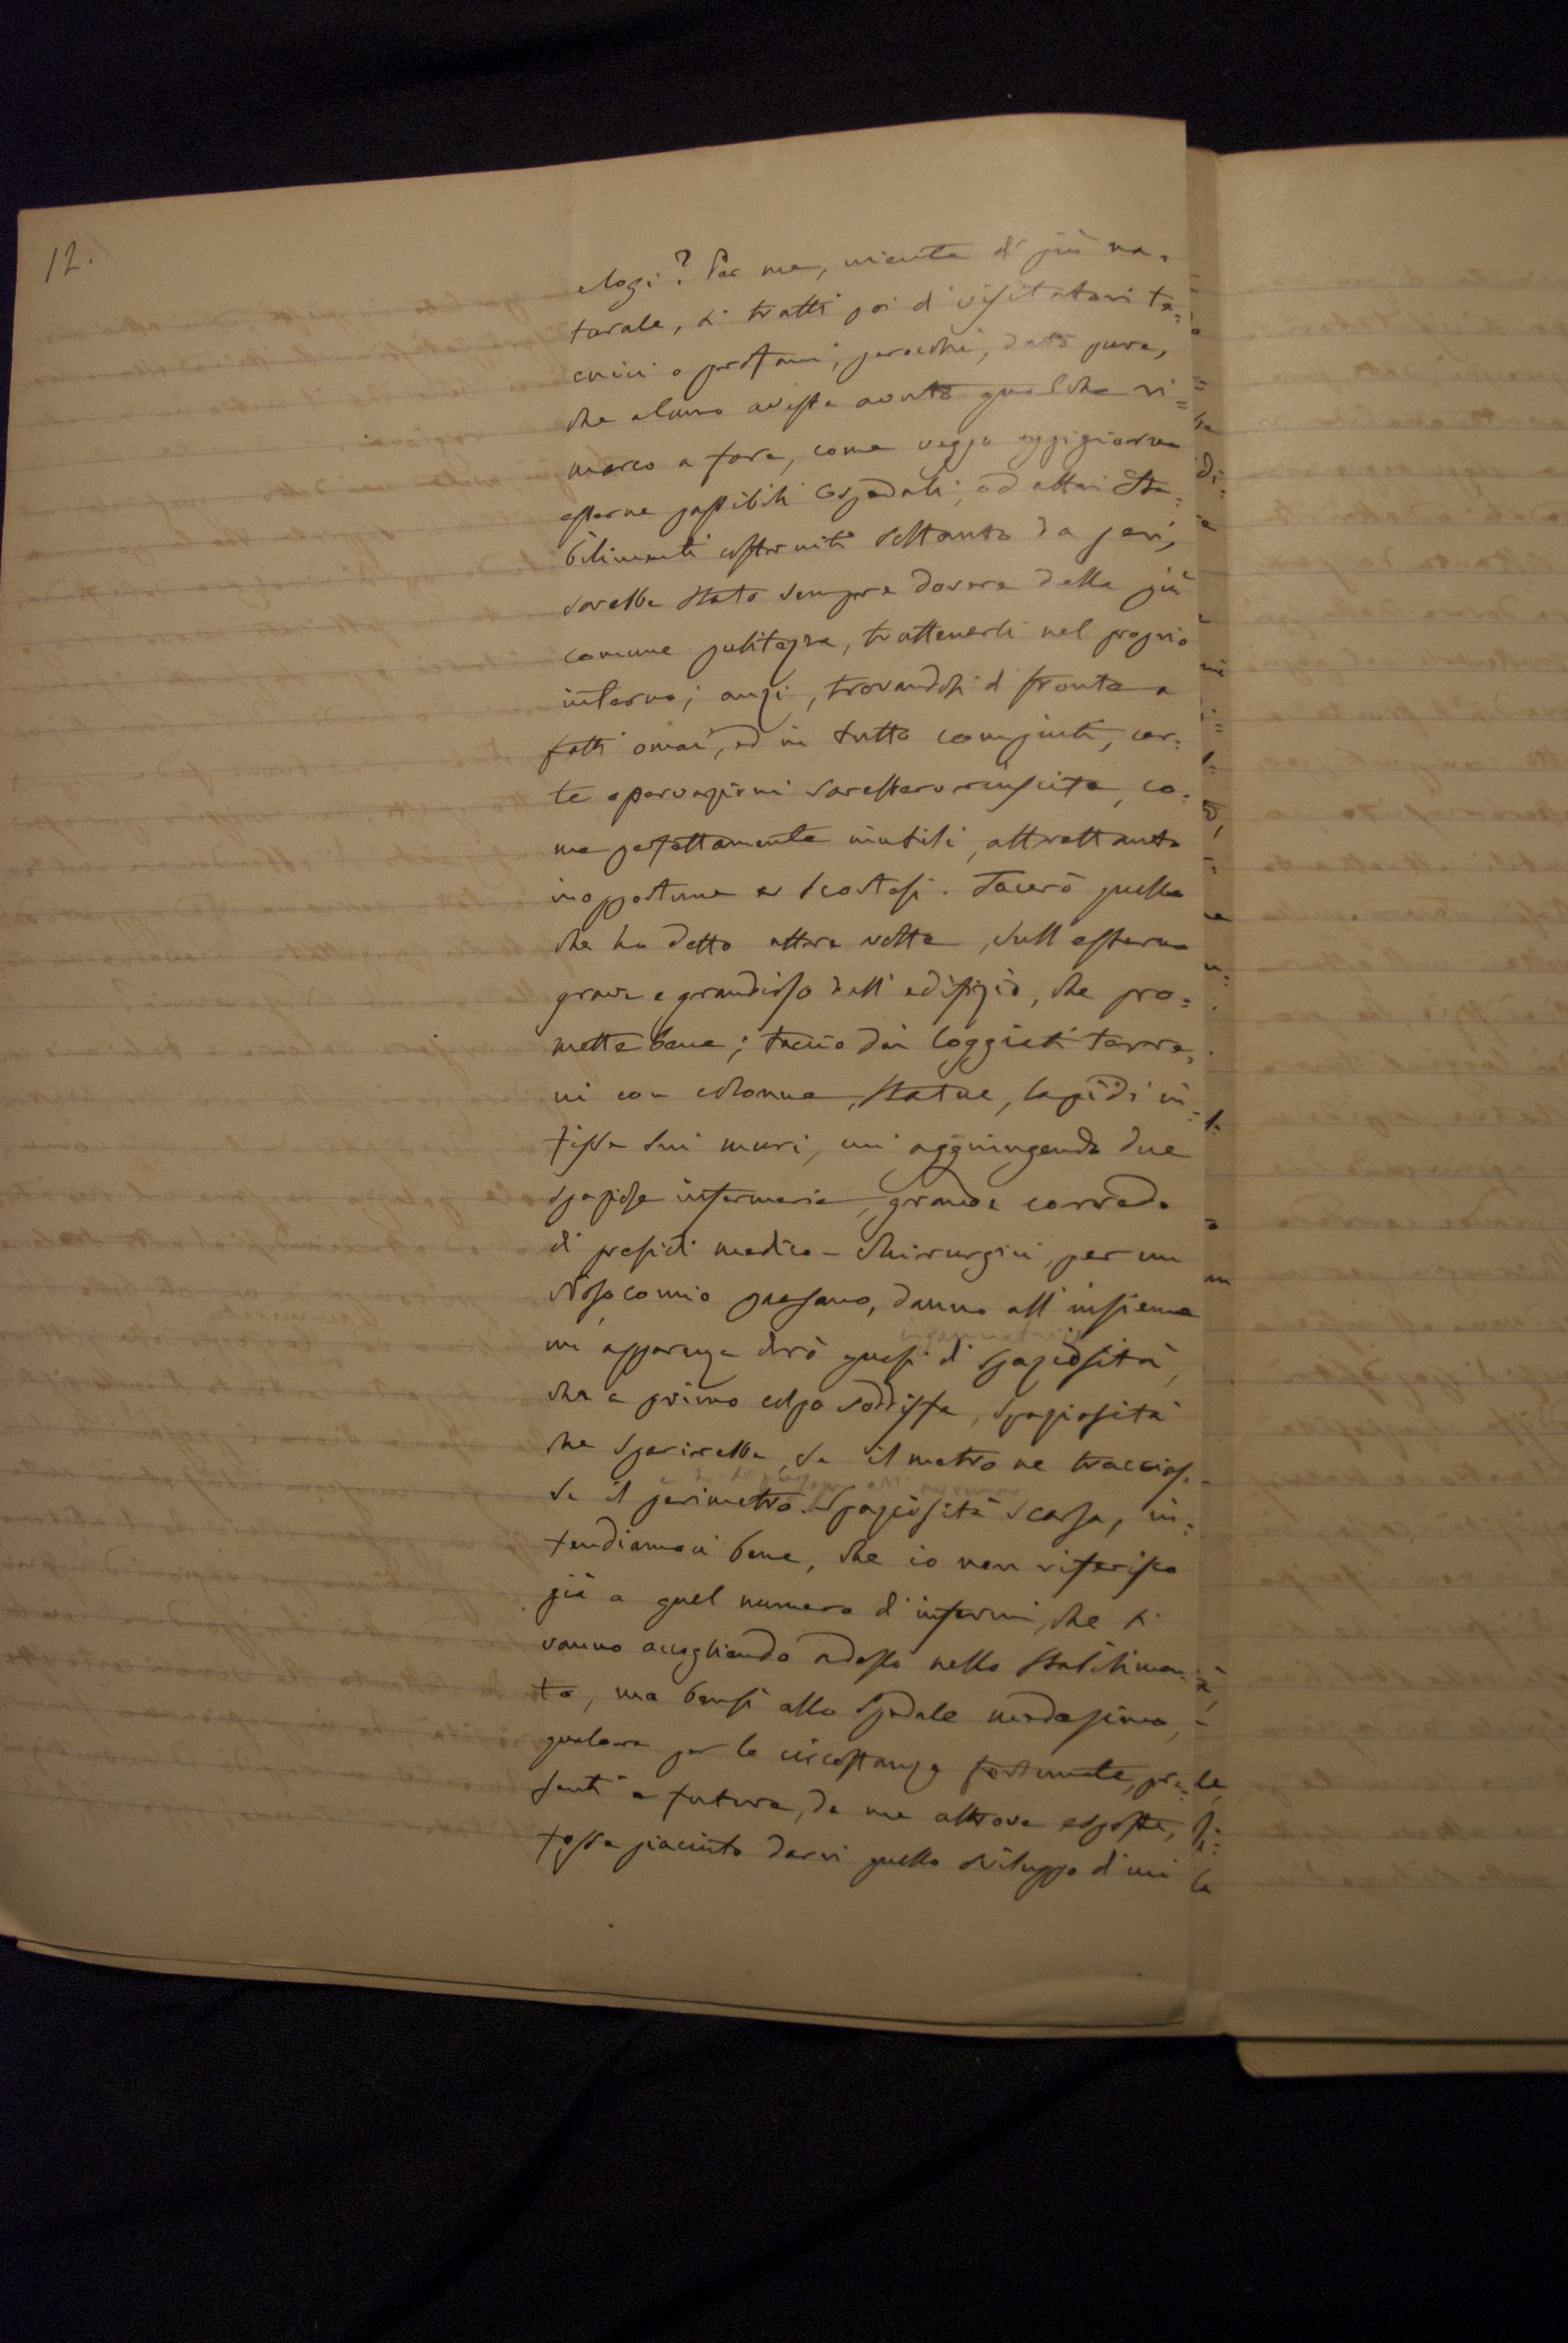 12.
elogi? Per me, niente di più na=
turale, si tratti poi di visitatori te=
cnici o profani; perocchè, dato pure,
che alcuno avesse avuto qualche ri=
marco a fare, come veggo oggigiorno
esserne passibili Ospedali, ed altri Sta=
bilimenti costruiti soltanto da jeri,
sarebbe stato sempre dovere della più
comune pulitezza, trattenerli nel proprio
interno; anzi, trovandosi di fronte a
fatti omai, ed in tutto compiuti, cer=
te osservazioni sarebbero riuscite, co=
me perfettamente inutili, altrettanto
inopportune e scortesi. Tacerò quello
che ho detto altra volta, sull'esterno
grave e grandioso dell'edifizio, che pro=
mette bene; taccio dei loggiati terre=
ni con colonne, statue, lapidi in=
fisse sui muri, cui aggiungendo due
spaziose infermerie, grande corredo
di presidi medico-chirurgici, per un
Nosocomio paesano, danno all'insieme
un'apparenza dirò quasi di spaziosità,
che a primo colpo soddisfa, spaziosità
che sparirebbe, se il metro ne traccias-
se il perimetro. Spaziosità scarsa, in=
tendiamoci bene, che io non riferisco
già a quel numero d'infermi, che si
vanno accogliendo adesso nello Stabilimen-
to, ma bensì allo Spedale medesimo,
qualora per le circostanze fortunate, pre=
senti e future, da me altrove esposte,
fosse piaciuto darvi quello sviluppo di cui